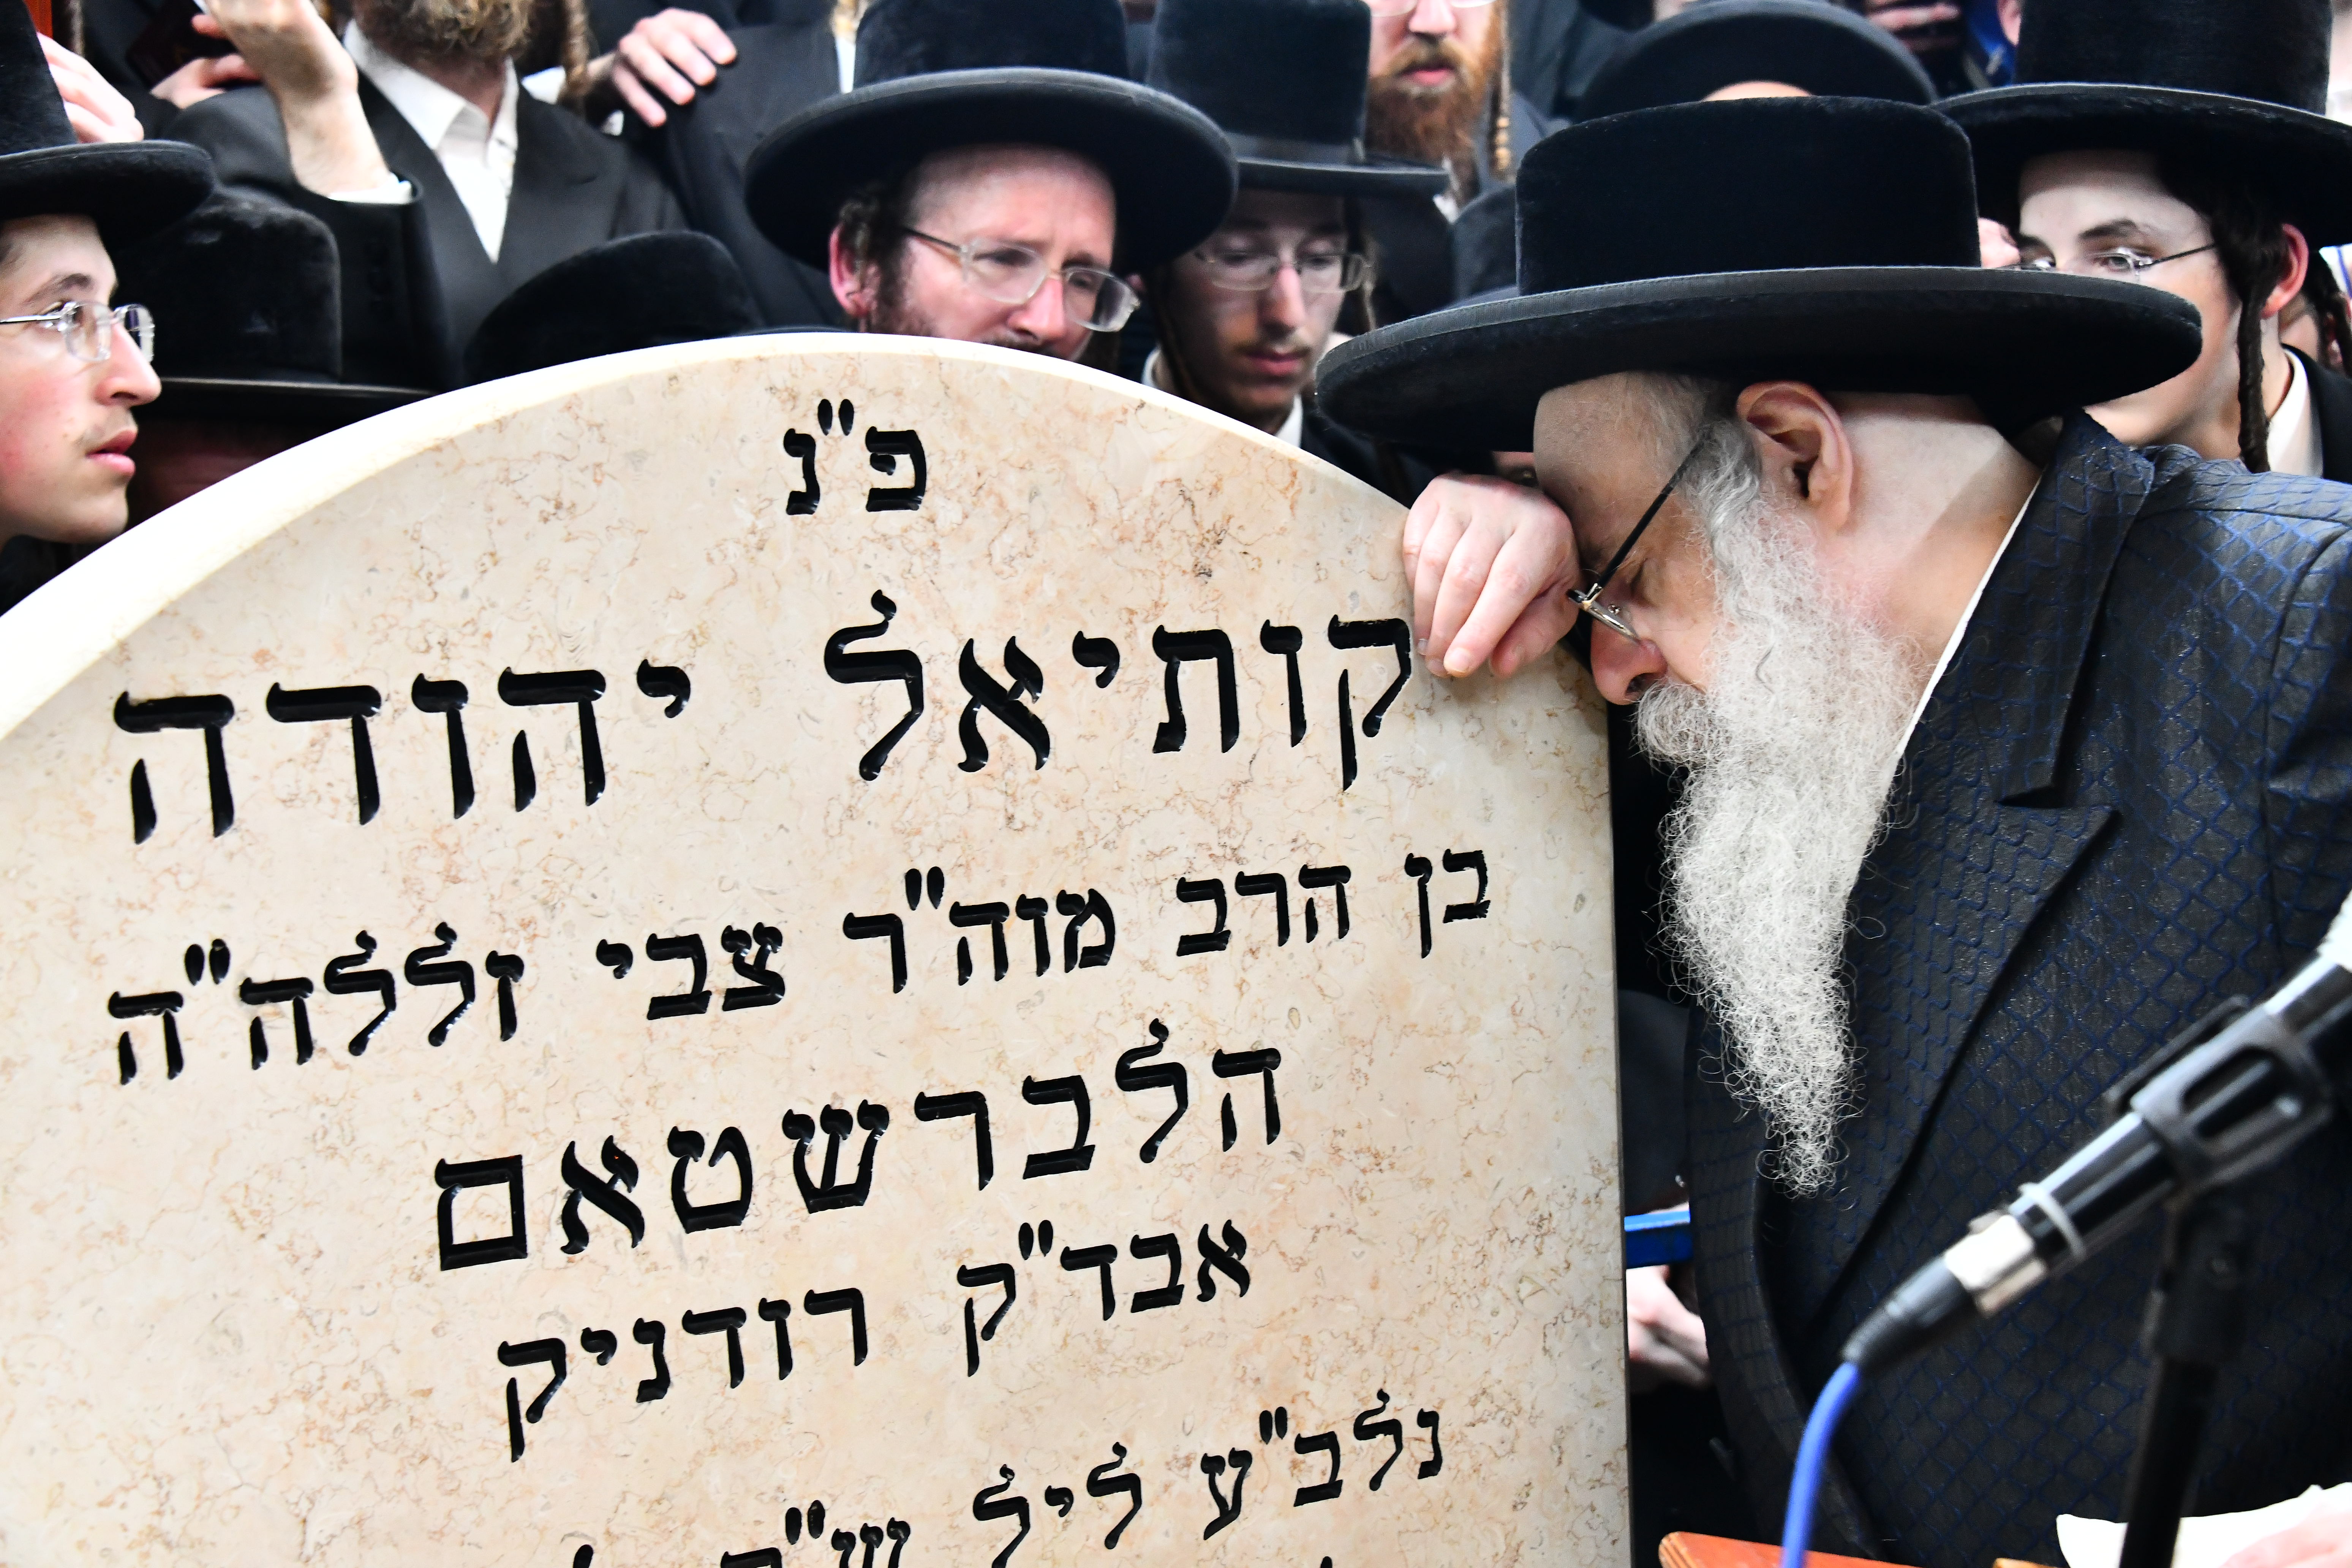 פ"נ
קותיאל יהודה
בן הרב מוה"ר צבי זללה"ה
הלברשטאם
אבד"ק רודניק
נלב"ע ליל